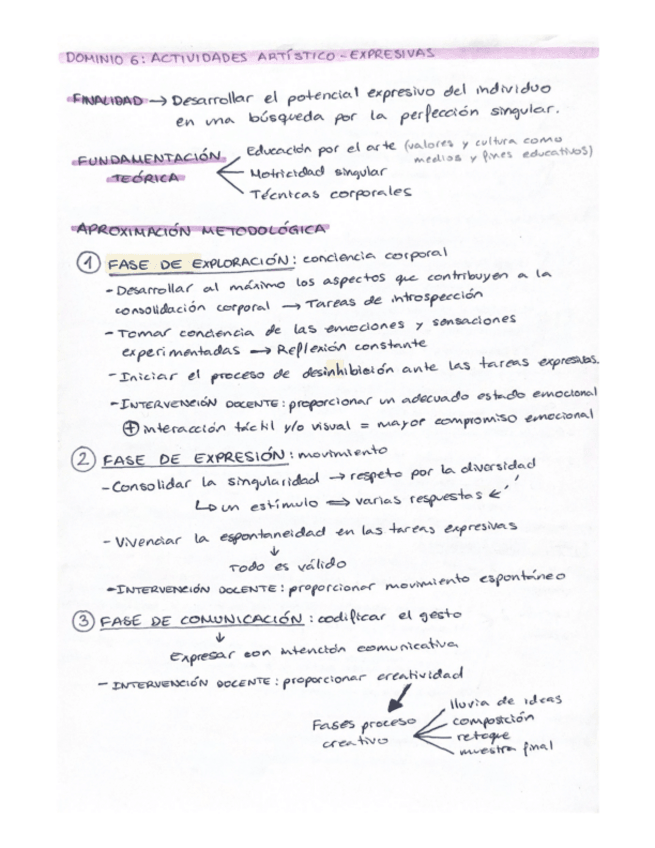 DOMINIO 6: ACTIVIDADES ARTÍSTICO-EXPRESIVAS
FINALIDAD → Desarrollar el potencial expresivo del individuo
en una búsqueda por la perfección singular.
FUNDAMENTACIÓN TEÓRICA
Educación por el arte (valores y cultura como
medios y fines educativos)
Motricidad singular
Técnicas corporales
APROXIMACIÓN METODOLÓGICA
① FASE DE EXPLORACIÓN: conciencia corporal
- Desarrollar al máximo los aspectos que contribuyen a la
consolidación corporal → Tareas de introspección
- Tomar conciencia de las emociones y sensaciones
experimentadas → Reflexión constante
- Iniciar el proceso de desinhibición ante las tareas expresivas.
- INTERVENCIÓN DOCENTE: proporcionar un adecuado estado emocional
⊕ interacción táctil y/o visual = mayor compromiso emocional
② FASE DE EXPRESIÓN: movimiento
- Consolidar la singularidad → respeto por la diversidad
↳ un estímulo ⇒ varias respuestas ←
- Vivenciar la espontaneidad en las tareas expresivas
↓
Todo es válido
- INTERVENCIÓN DOCENTE: proporcionar movimiento espontáneo
③ FASE DE COMUNICACIÓN: codificar el gesto
↓
Expresar con intención comunicativa
- INTERVENCIÓN DOCENTE: proporcionar creatividad
Fases proceso
creativo
lluvia de ideas
composición
retoque
muestra final